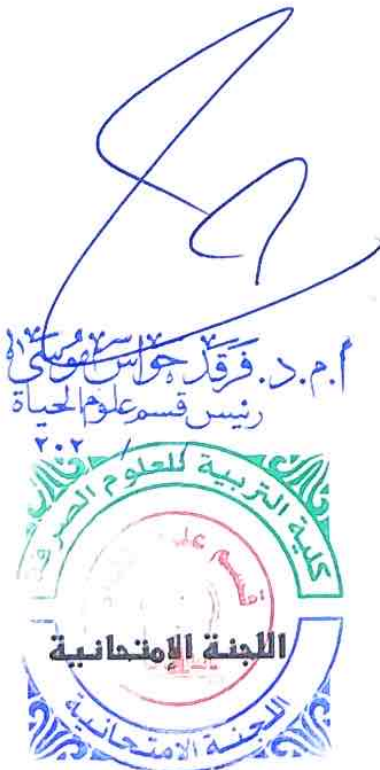 أ.م.د. فرقد حواس موسى
رئيس قسم علوم الحياة
/ / ٢٠٢
كلية التربية للعلوم الصرفة
قسم
اللجنة الإمتحانية
اللجنة الامتحانية